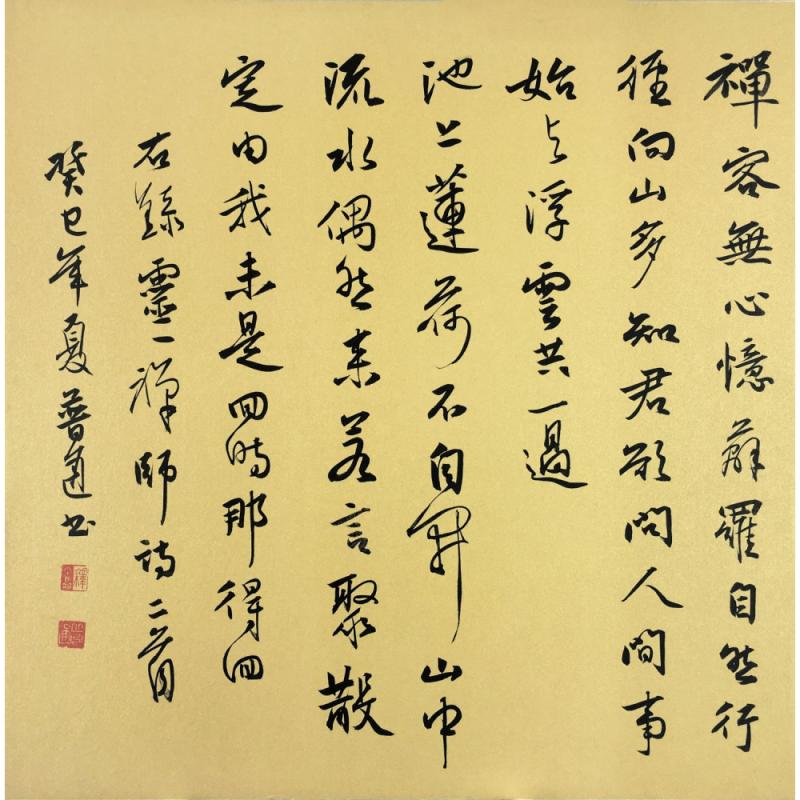 禪客無心憶薜蘿自然行
徑向山多知君欲問人間事
始与浮雲共一過
池上蓮荷不自開山中
流水偶然來若言聚散
定由我未是回時那得回
右錄靈一禪師詩二首
癸巳年夏普通书